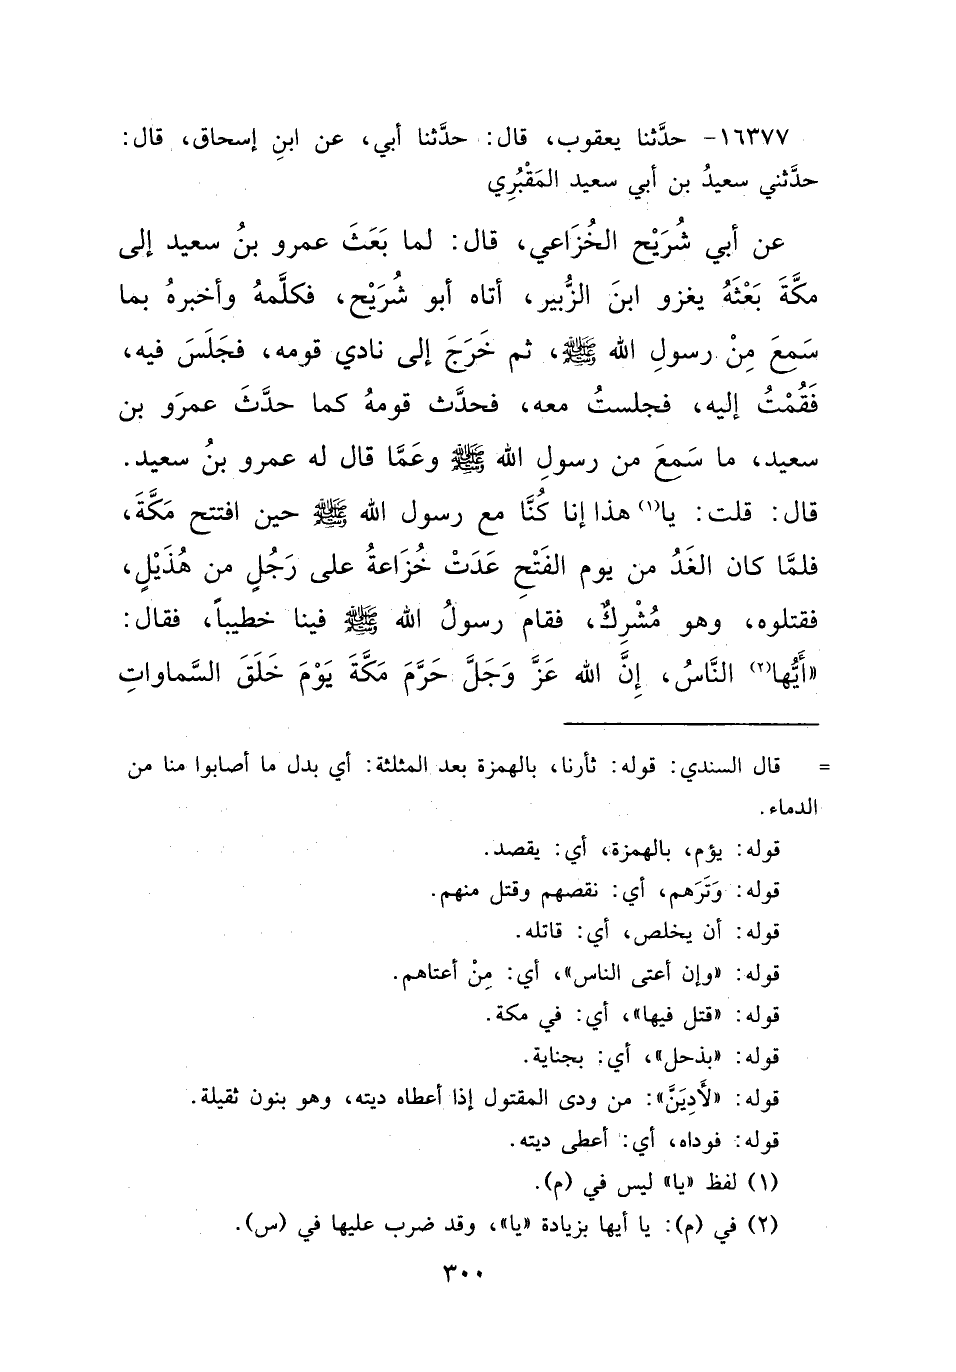 ١٦٣٧٧- حدَّثنا يعقوب، قال: حدَّثنا أبي، عن ابنِ إسحاق، قال:
حدَّثني سعيدُ بن أبي سعيد المَقْبُرِي
عن أبي شُرَيْح الخُزَاعي، قال: لما بَعَثَ عمرو بنُ سعيد إلى
مكَّةَ بَعْثَهُ يغزو ابنَ الزُّبير، أتاه أبو شُرَيْح، فكلَّمهُ وأخبرهُ بما
سَمِعَ مِنْ رسولِ الله ﷺ، ثم خَرَجَ إلى نادي قومه، فجَلَسَ فيه،
فَقُمْتُ إليه، فجلستُ معه، فحدَّث قومهُ كما حدَّثَ عمرَو بن
سعيد، ما سَمِعَ من رسولِ الله ﷺ وعَمَّا قال له عمرو بنُ سعيد.
قال: قلت: يا(١) هذا إنا كُنَّا مع رسول الله ﷺ حين افتتح مَكَّةَ،
فلمَّا كان الغَدُ من يوم الفَتْحِ عَدَتْ خُزَاعةُ على رَجُلٍ من هُذَيْلٍ،
فقتلوه، وهو مُشْرِكٌ، فقام رسولُ الله ﷺ فينا خطيباً، فقال:
«أَيُّها(٢) النَّاسُ، إِنَّ الله عَزَّ وَجَلَّ حَرَّمَ مَكَّةَ يَوْمَ خَلَقَ السَّماواتِ
= قال السندي: قوله: ثأرنا، بالهمزة بعد المثلثة: أي بدل ما أصابوا منا من
الدماء.
قوله: يؤم، بالهمزة، أي: يقصد.
قوله: وَتَرَهم، أي: نقصهم وقتل منهم.
قوله: أن يخلص، أي: قاتله.
قوله: «وإن أعتى الناس»، أي: مِنْ أعتاهم.
قوله: «قتل فيها»، أي: في مكة.
قوله: «بذحل»، أي: بجناية.
قوله: «لَأَدِيَنَّ»: من ودى المقتول إذا أعطاه ديته، وهو بنون ثقيلة.
قوله: فوداه، أي: أعطى ديته.
(١) لفظ «يا» ليس في (م).
(٢) في (م): يا أيها بزيادة «يا»، وقد ضرب عليها في (س).
٣٠٠